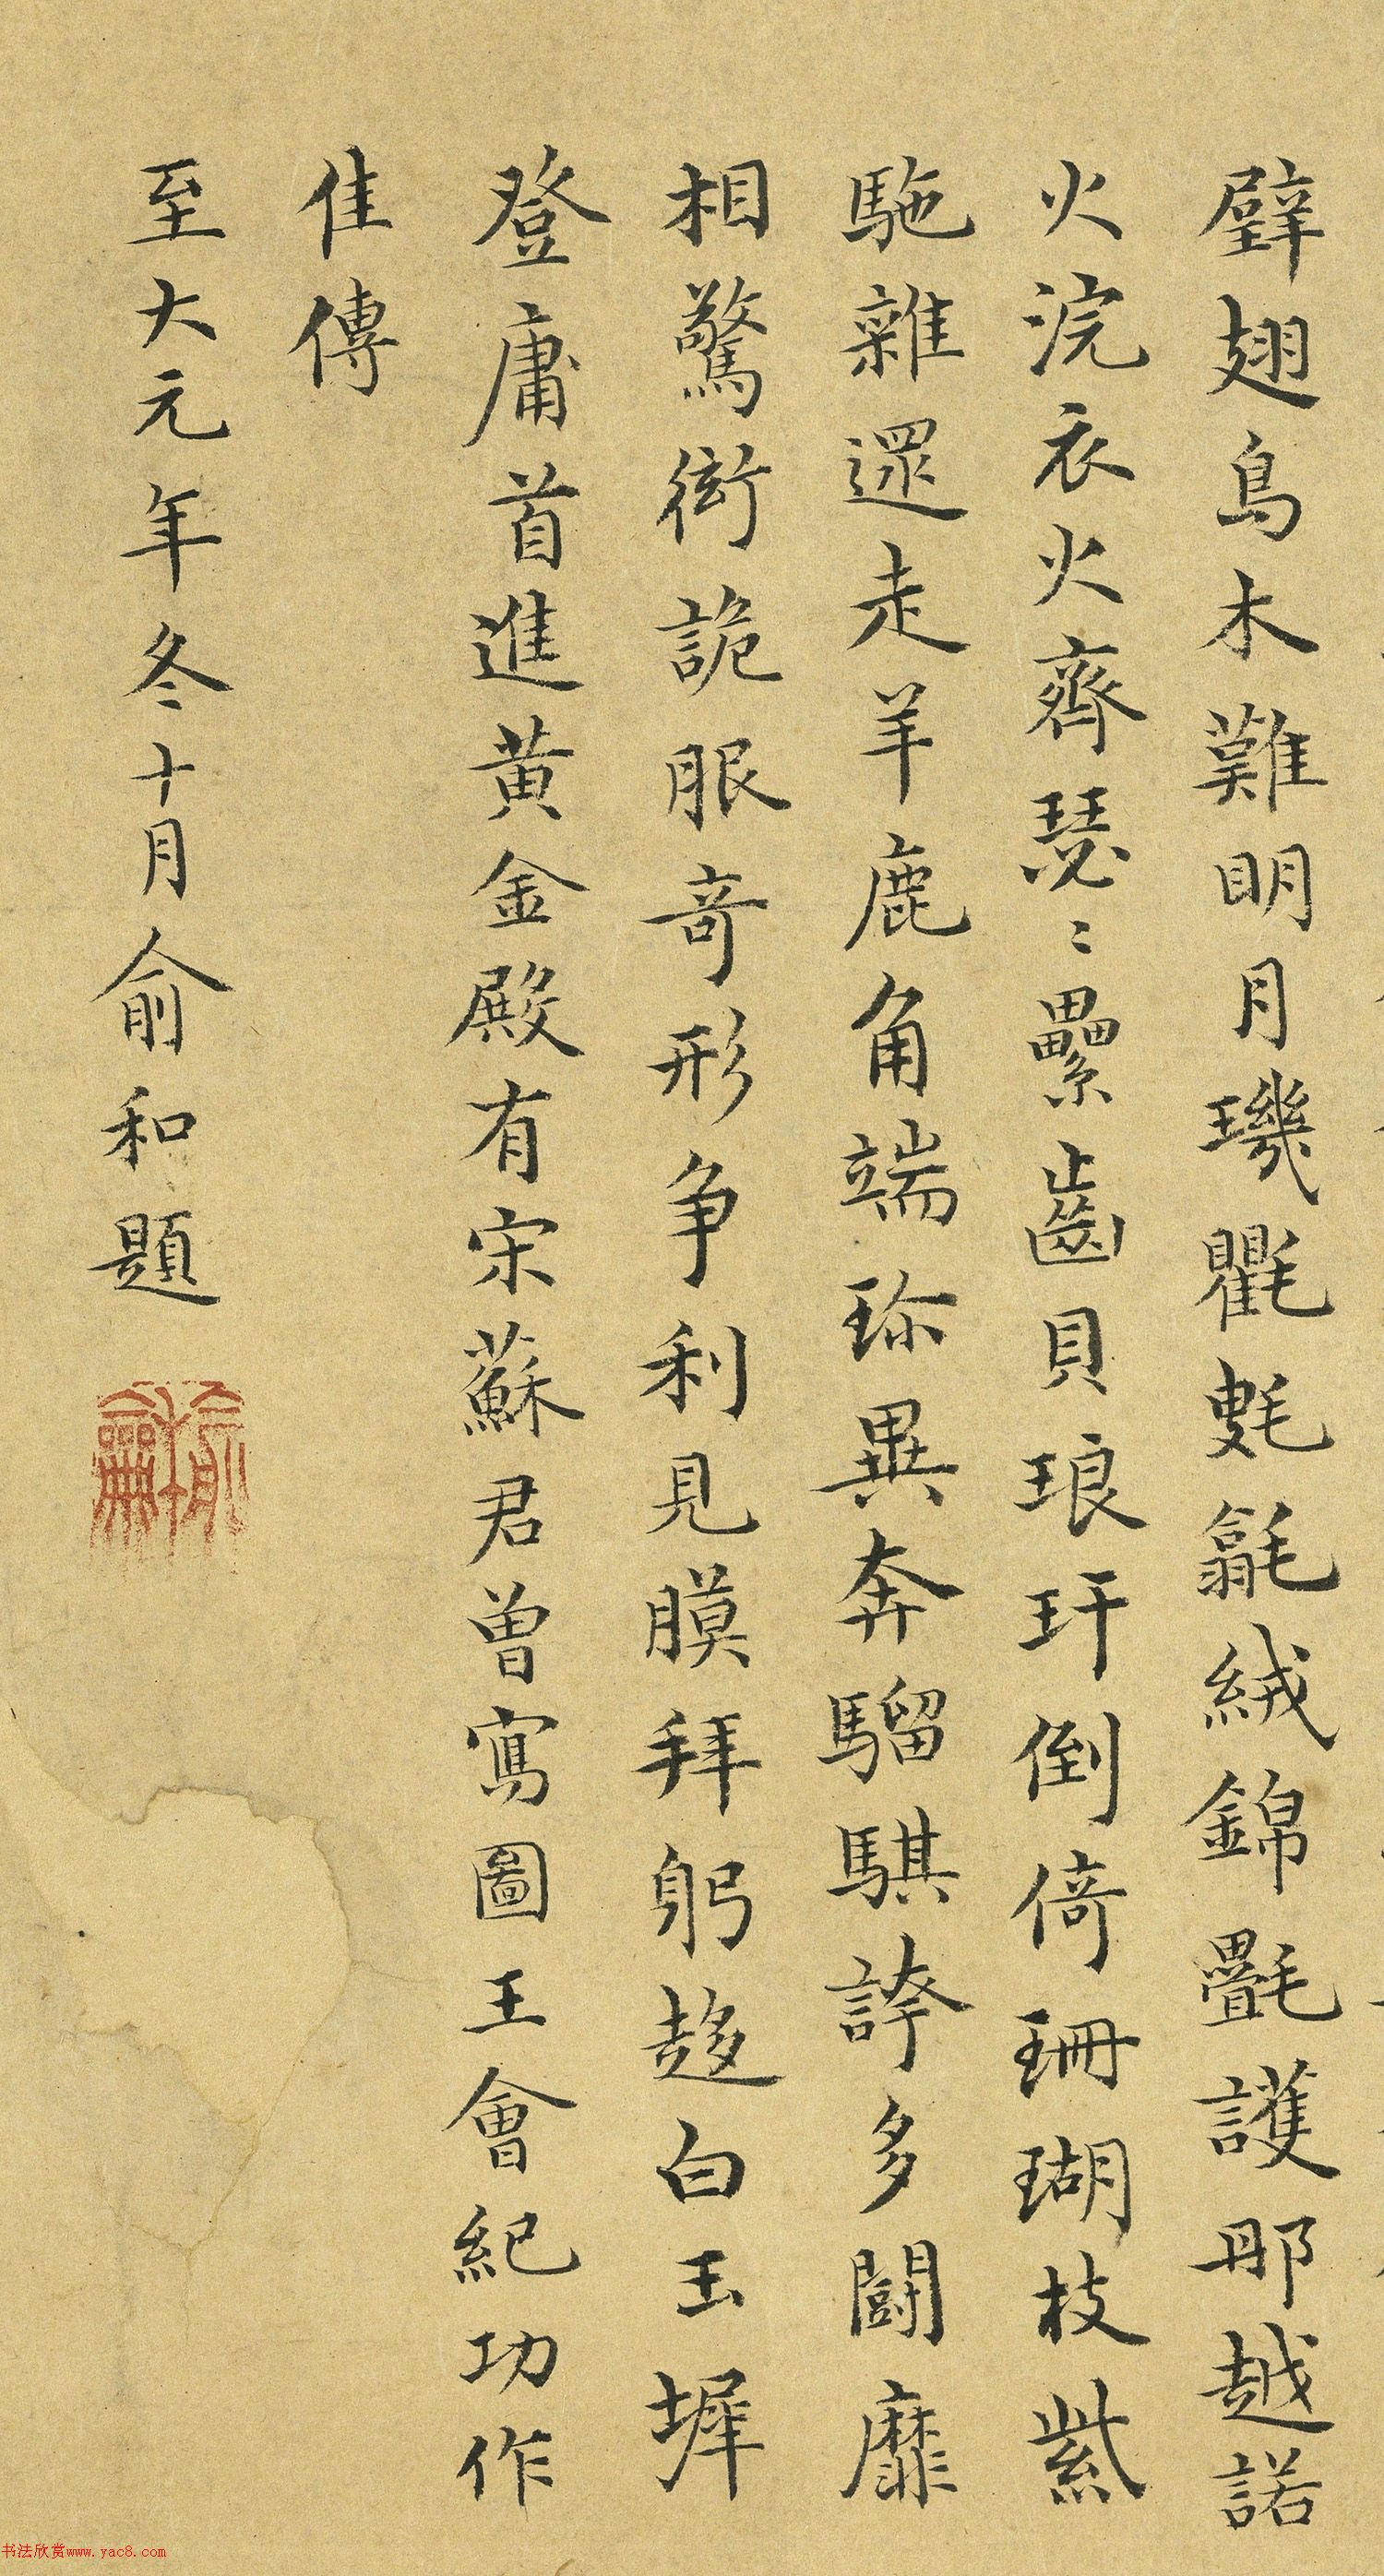 躃翅鳥木難明月璣氍毹氍毾㲪絨錦氎護那越諾
火浣衣火齊瑟〻纍齒貝琅玕倒倚珊瑚枝紫
駞雜遝走羊鹿角端珎異奔騮騏誇多鬪靡
相驚衒詭服奇形争利見膜拜躬趍白玉墀
登庸首進黄金殿有宋蘇君曾寫圖王會紀功作
佳傳
至大元年冬十月俞和題
书法欣赏www.yac8.com